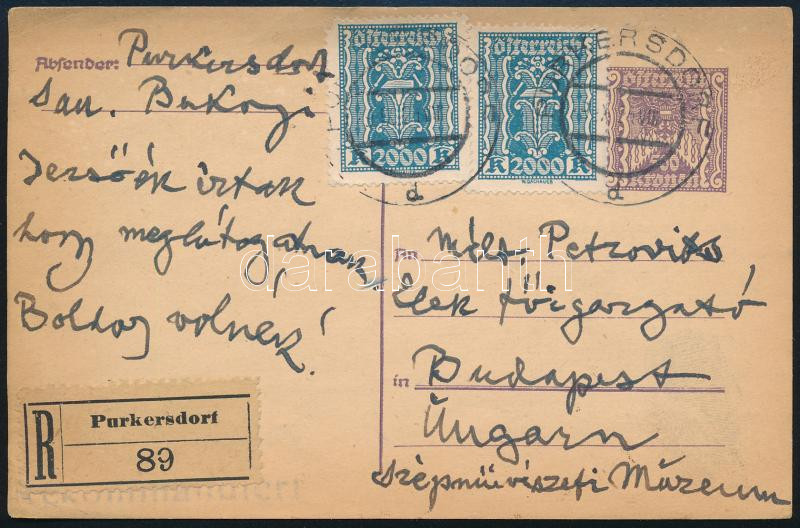 Absender: Purkersdorf
San. Bukogi
Jezsőék írtak
hogy meglátogatnak,
Boldog volnék!
R
Purkersdorf
89
österreich
K 2000 K
österreich
K 2000 K
PURKERSDORF
d
d
darabanth
An Mélt. Petrovits
Elek főigazgató
in Budapest
Ungarn
Szépművészeti Múzeum